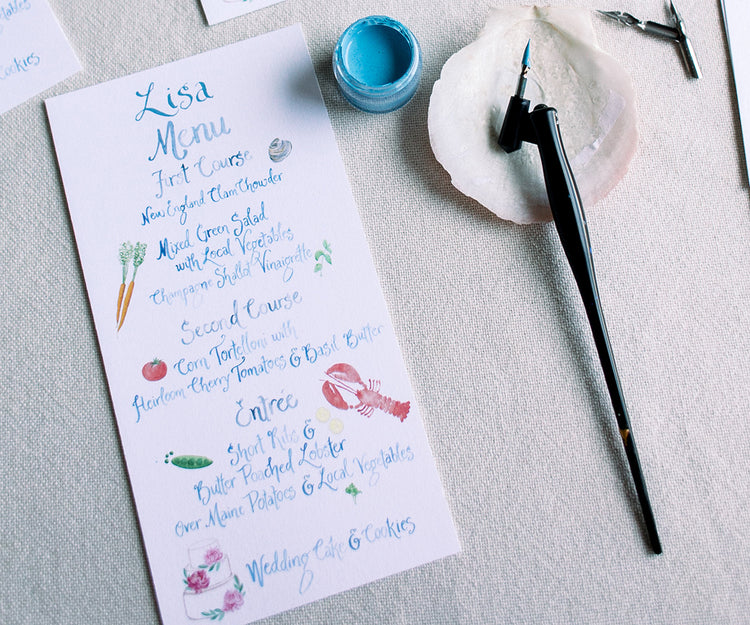 etables
Cookies
Lisa
Menu
First Course
New England Clam Chowder
Mixed Green Salad
with Local Vegetables
Champagne Shallot Vinaigrette
Second Course
Corn Tortelloni with
Heirloom Cherry Tomatoes & Basil Butter
Entrée
Short Ribs &
Butter Poached Lobster
over Maine Potatoes & Local Vegetables
Wedding Cake & Cookies